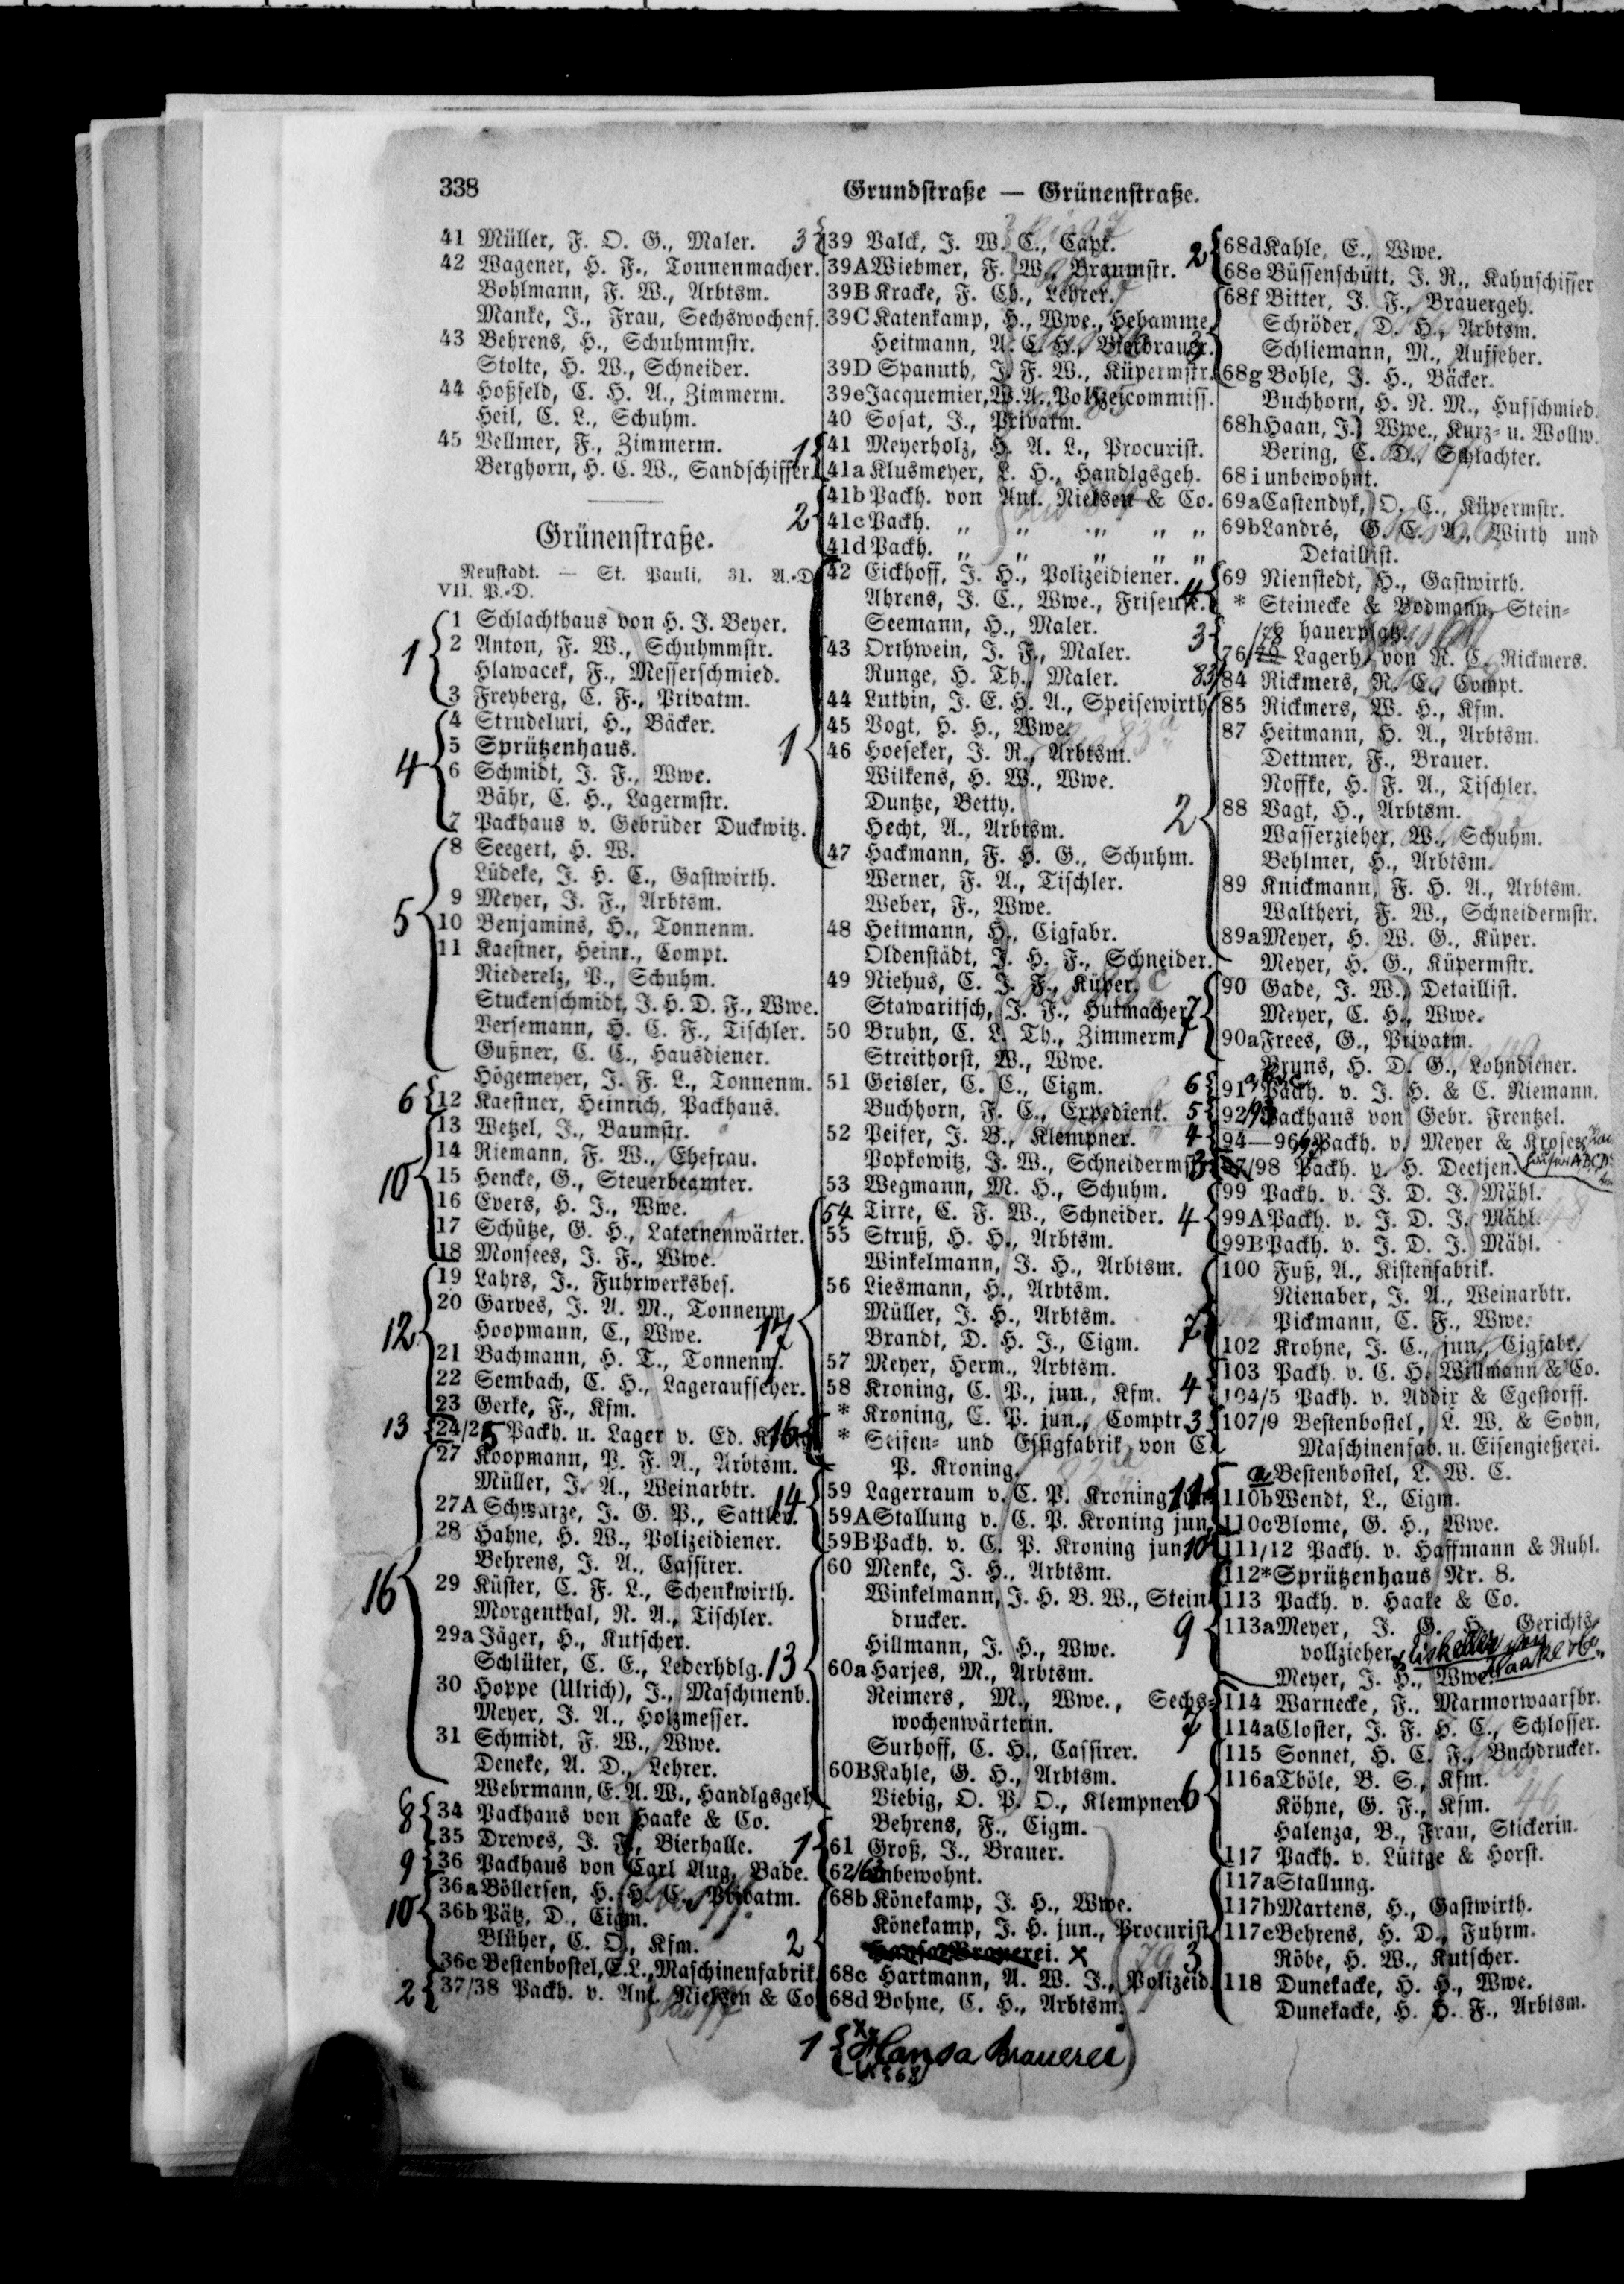 338
Grundstraße — Grünenstraße.
41 Müller, F. O. G., Maler.
42 Wagener, H. F., Tonnenmacher.
Bohlmann, F. W., Arbtsm.
Manke, J., Frau, Sechswochenf.
43 Behrens, H., Schuhmmstr.
Stolte, H. W., Schneider.
44 Hoßfeld, C. H. A., Zimmerm.
Heil, C. L., Schuhm.
45 Vellmer, F., Zimmerm.
Berghorn, H. C. W., Sandschiffer.
Grünenstraße.
Neustadt. — St. Pauli. 31. A.-D
VII. P.-D.
1 Schlachthaus von H. J. Beyer.
2 Anton, F. W., Schuhmmstr.
1
Hlawacek, F., Messerschmied.
3 Freyberg, C. F., Privatm.
4 Strudeluri, H., Bäcker.
5 Sprützenhaus.
4
6 Schmidt, J. F., Wwe.
Bähr, C. H., Lagermstr.
7 Packhaus v. Gebrüder Duckwitz.
8 Seegert, H. W.
Lüdeke, J. H. C., Gastwirth.
9 Meyer, J. F., Arbtsm.
5
10 Benjamins, H., Tonnenm.
11 Kaestner, Heinr., Compt.
Niederelz, P., Schuhm.
Stuckenschmidt, J. H. D. F., Wwe.
Versemann, H. C. F., Tischler.
Gußner, C. C., Hausdiener.
Högemeyer, J. F. L., Tonnenm.
6
12 Kaestner, Heinrich, Packhaus.
13 Wetzel, J., Baumstr.
14 Riemann, F. W., Ehefrau.
10
15 Hencke, G., Steuerbeamter.
16 Evers, H. J., Wwe.
17 Schütze, G. H., Laternenwärter.
18 Monsees, J. F., Wwe.
19 Lahrs, J., Fuhrwerksbes.
20 Garves, J. A. M., Tonnenm.
12
Hoopmann, C., Wwe.
21 Bachmann, H. T., Tonnenm.
22 Sembach, C. H., Lageraufseher.
23 Gerke, F., Kfm.
13
24/25 Packh. u. Lager v. Ed.
27 Koopmann, P. F. A., Arbtsm.
Müller, J. A., Weinarbtr.
27A Schwarze, J. G. P., Sattler.
28 Hahne, H. W., Polizeidiener.
Behrens, J. A., Cassirer.
16
29 Küster, C. F. L., Schenkwirth.
Morgenthal, N. A., Tischler.
29a Jäger, H., Kutscher.
Schlüter, C. E., Lederhdlg.
30 Hoppe (Ulrich), J., Maschinenb.
Meyer, J. A., Holzmesser.
31 Schmidt, F. W., Wwe.
Deneke, A. D., Lehrer.
Wehrmann, E. A. W., Handlgsgeh
8
34 Packhaus von Haake & Co.
35 Drewes, J. F., Bierhalle.
9
36 Packhaus von Carl Aug. Bade.
36a Böllersen, H. H. C., Privatm.
10
36b Pätz, D., Cigm.
Blüher, C. O., Kfm.
36c Bestenbostel, E.L., Maschinenfabrik.
2
37/38 Packh. v. Ant. Nielsen & Co
3
39 Valck, J. W. C., Capt.
39A Wiebmer, F. W., Braumstr.
39B Kracke, F. Ch., Lehrer.
39C Katenkamp, H., Wwe., Hebamme.
Heitmann, A. C. H., Bierbrauer.
39D Spanuth, J. F. W., Küpermstr.
39e Jacquemier, W. A., Polizeicommiss.
40 Sosat, J., Privatm.
1
41 Meyerholz, H. A. L., Procurist.
41a Klusmeyer, L. H., Handlgsgeh.
41b Packh. von Ant. Nielsen & Co.
2
41c Packh. „ „ „ „ „
41d Packh. „ „ „ „ „
42 Eickhoff, J. H., Polizeidiener.
Ahrens, J. C., Wwe., Friseuse.
Seemann, H., Maler.
43 Orthwein, J. F., Maler.
Runge, H. Th., Maler.
44 Luthin, J. E. H. A., Speisewirth
45 Vogt, H. H., Wwe.
1
46 Hoeseker, J. R., Arbtsm.
Wilkens, H. W., Wwe.
Duntze, Betty.
Hecht, A., Arbtsm.
47 Hackmann, F. H. G., Schuhm.
Werner, F. A., Tischler.
Weber, F., Wwe.
48 Heitmann, H., Cigfabr.
Oldenstädt, J. H. F., Schneider.
49 Niehus, C. J. F., Küper.
Stawaritsch, J. F., Hutmacher.
50 Bruhn, C. L. Th., Zimmerm.
Streithorst, W., Wwe.
51 Geisler, C. C., Cigm.
Buchhorn, F. C., Expedient.
52 Peifer, J. B., Klempner.
Popkowitz, J. W., Schneidermstr.
53 Wegmann, M. H., Schuhm.
54 Tirre, C. F. W., Schneider.
55 Struß, H. H., Arbtsm.
Winkelmann, J. H., Arbtsm.
56 Liesmann, H., Arbtsm.
Müller, J. H., Arbtsm.
17
Brandt, D. H. J., Cigm.
57 Meyer, Herm., Arbtsm.
58 Kroning, C. P., jun., Kfm.
16
* Kroning, C. P. jun., Comptr.
* Seifen- und Essigfabrik von C.
P. Kroning.
14
59 Lagerraum v. C. P. Kroning jun.
59A Stallung v. C. P. Kroning jun.
59B Packh. v. C. P. Kroning jun
60 Menke, J. H., Arbtsm.
Winkelmann, J. H. B. W., Stein-
drucker.
Hillmann, J. H., Wwe.
13
60a Harjes, M., Arbtsm.
Reimers, M., Wwe., Sechs-
wochenwärterin.
Surhoff, C. H., Cassirer.
60B Kahle, G. H., Arbtsm.
Viebig, O. P. O., Klempner.
Behrens, F., Cigm.
1
61 Groß, J., Brauer.
62/63 unbewohnt.
68b Könekamp, J. H., Wwe.
Könekamp, J. H. jun., Procurist
2
Hansa-Brauerei. x
68c Hartmann, A. W. J., Polizeid.
68d Bohne, C. H., Arbtsm.
1
Hansa Brauerei
2
68d Kahle, E., Wwe.
68e Büssenschütt, J. R., Kahnschiffer
68f Bitter, J. F., Brauergeh.
Schröder, D. H., Arbtsm.
3
Schliemann, M., Aufseher.
68g Bohle, J. H., Bäcker.
Buchhorn, H. N. M., Hufschmied.
68h Haan, J., Wwe., Kurz- u. Wollw.
Bering, C. D., Schlachter.
68i unbewohnt.
69a Castendyk, O. C., Küpermstr.
69b Landré, G. C. A., Wirth und
Detaillist.
4
69 Nienstedt, H., Gastwirth.
* Steinecke & Bodmann, Stein-
hauerplatz.
3
76/78 Lagerh. von R. C. Rickmers.
83/84 Rickmers, R. C., Compt.
85 Rickmers, W. H., Kfm.
87 Heitmann, H. A., Arbtsm.
Dettmer, F., Brauer.
Noffke, H. F. A., Tischler.
2
88 Vagt, H., Arbtsm.
Wasserzieher, W., Schuhm.
Behlmer, H., Arbtsm.
89 Knickmann, F. H. A., Arbtsm.
Waltheri, F. W., Schneidermstr.
89a Meyer, H. W. G., Küper.
Meyer, H. G., Küpermstr.
90 Gade, J. W., Detaillist.
7
Meyer, C. H., Wwe.
90a Frees, G., Privatm.
Bruns, H. D. G., Lohndiener.
6
91 Packh. v. J. H. & C. Niemann.
5
92/93 Packhaus von Gebr. Frentzel.
4
94—96 Packh. v. Meyer & Kroser
3
97/98 Packh. v. H. Deetjen.
99 Packh. v. J. D. J. Mähl.
4
99A Packh. v. J. D. J. Mähl.
99B Packh. v. J. D. J. Mähl.
100 Fuß, A., Kistenfabrik.
Nienaber, J. A., Weinarbtr.
7
Pickmann, C. F., Wwe.
102 Krohne, J. C., jun., Cigfabr.
103 Packh. v. C. H. Willmann & Co.
4
104/5 Packh. v. Addix & Egestorff.
3
107/9 Bestenbostel, L. W. & Sohn,
Maschinenfab. u. Eisengießerei.
a Bestenbostel, L. W. C.
11
110b Wendt, L., Cigm.
110c Blome, G. H., Wwe.
10
111/12 Packh. v. Haffmann & Ruhl.
112* Sprützenhaus Nr. 8.
113 Packh. v. Haake & Co.
9
113a Meyer, J. G. H., Gerichts-
vollzieher. Eiskeller von
Haake
Meyer, J. H., Wwe.
114 Warnecke, F., Marmorwaarfbr.
7
114a Closter, J. F. H. C., Schlosser.
115 Sonnet, H. C. F., Buchdrucker.
6
116a Tböle, B. S., Kfm.
Köhne, G. F., Kfm.
46
Halenza, B., Frau, Stickerin.
117 Packh. v. Lüttge & Horst.
117a Stallung.
117b Martens, H., Gastwirth.
117c Behrens, H. D., Fuhrm.
3
Röbe, H. W., Kutscher.
118 Dunekacke, H. H., Wwe.
Dunekacke, H. H. F., Arbtsm.